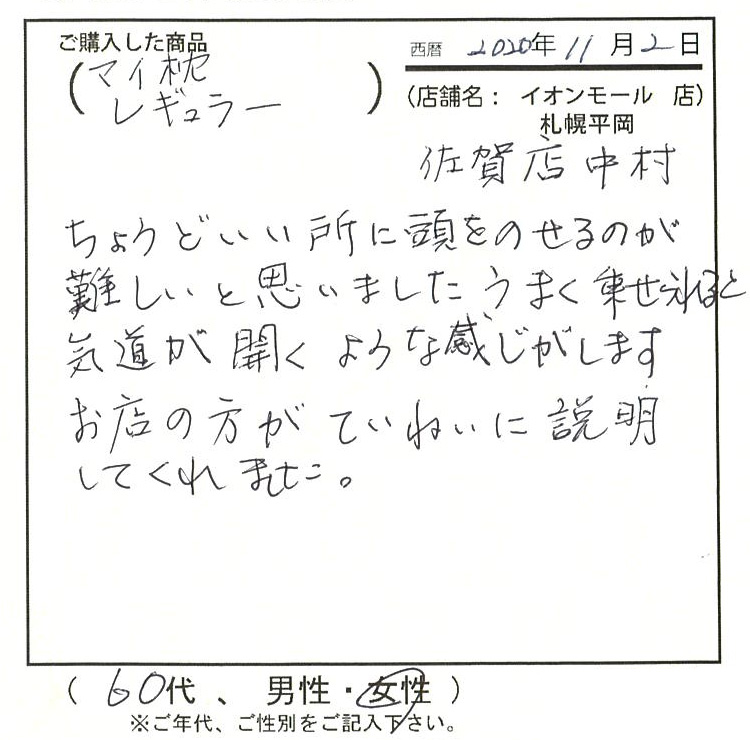 ご購入した商品
(マイ枕
レギュラー)
西暦 2020年11月2日
(店舗名: イオンモール 店)
札幌平岡
佐賀店中村
ちょうどいい所に頭をのせるのが
難しいと思いましたうまく乗せられると
気道が開くような感じがします
お店の方がていねいに説明
してくれました。
(60代、男性・女性)
※ご年代、ご性別をご記入下さい。